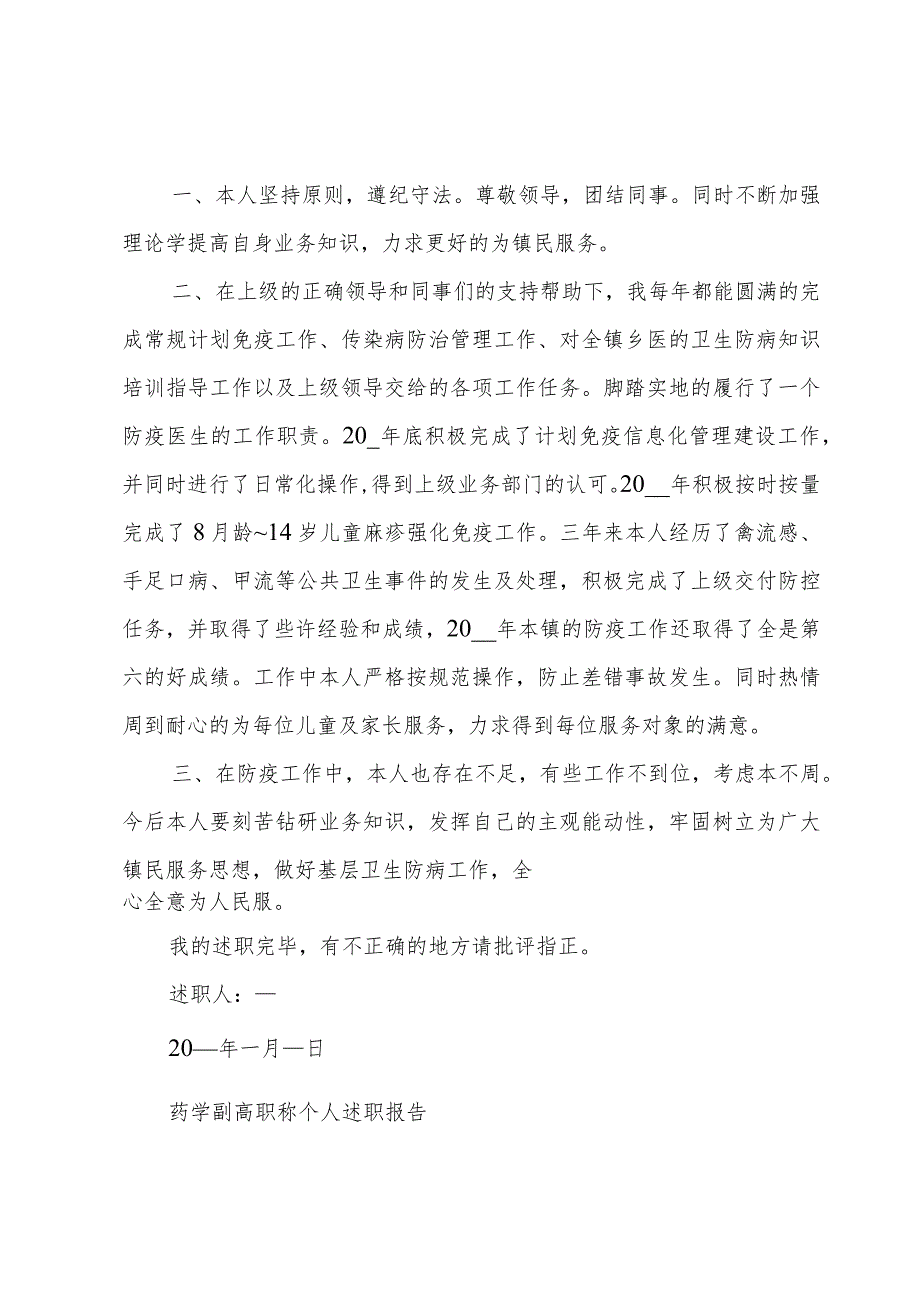 一、本人坚持原则，遵纪守法。尊敬领导，团结同事。同时不断加强
理论学提高自身业务知识，力求更好的为镇民服务。
二、在上级的正确领导和同事们的支持帮助下，我每年都能圆满的完
成常规计划免疫工作、传染病防治管理工作、对全镇乡医的卫生防病知识
培训指导工作以及上级领导交给的各项工作任务。脚踏实地的履行了一个
防疫医生的工作职责。20_年底积极完成了计划免疫信息化管理建设工作,
并同时进行了日常化操作,得到上级业务部门的认可。20__年积极按时按量
完成了 8 月龄~14 岁儿童麻疹强化免疫工作。三年来本人经历了禽流感、
手足口病、甲流等公共卫生事件的发生及处理，积极完成了上级交付防控
任务，并取得了些许经验和成绩，20__年本镇的防疫工作还取得了全是第
六的好成绩。工作中本人严格按规范操作，防止差错事故发生。同时热情
周到耐心的为每位儿童及家长服务，力求得到每位服务对象的满意。
三、在防疫工作中，本人也存在不足，有些工作不到位，考虑本不周。
今后本人要刻苦钻研业务知识，发挥自己的主观能动性，牢固树立为广大
镇民服务思想，做好基层卫生防病工作，全
心全意为人民服。
我的述职完毕，有不正确的地方请批评指正。
述职人：—
20—年一月—日
药学副高职称个人述职报告